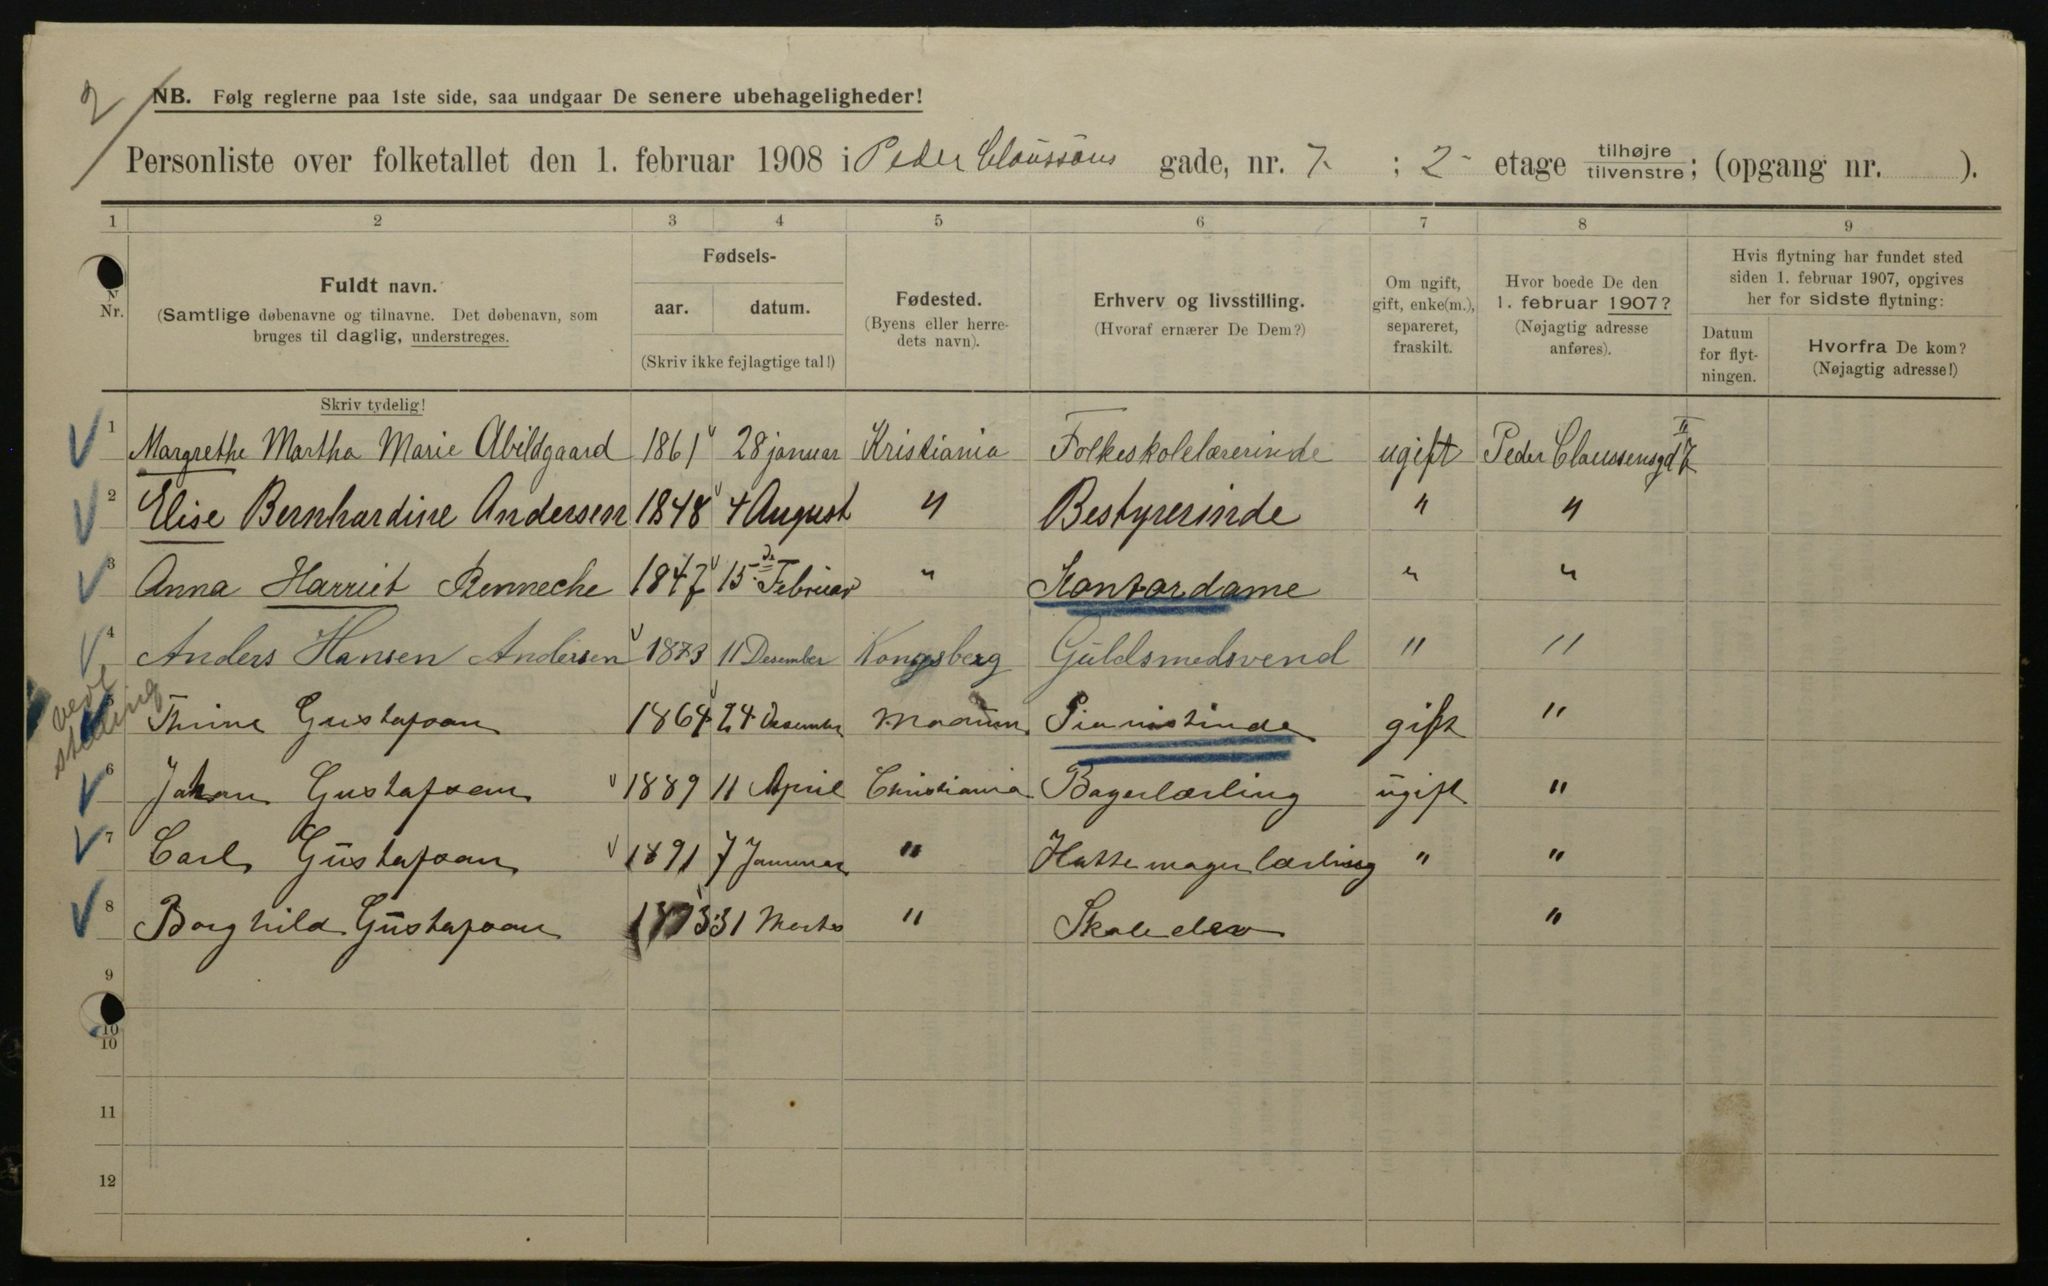 2
NB. Følg reglerne paa 1ste side, saa undgaar De senere ubehageligheder!
Personliste over folketallet den 1. februar 1908 i Peder Claussøns gade, nr. 7 ; 2 etage tilhøjre tilvenstre; (opgang nr. ).
1 2 3 4 5 6 7 8 9
Nr.
Fuldt navn.
(Samtlige døbenavne og tilnavne. Det døbenavn, som
bruges til daglig, understreges.
Skriv tydelig!
Fødsels-
aar. datum.
(Skriv ikke fejlagtige tal!)
Fødested.
(Byens eller herre-
dets navn).
Erhverv og livsstilling.
(Hvoraf ernærer De Dem?)
Om ugift,
gift, enke(m.),
separeret,
fraskilt.
Hvor boede De den
1. februar 1907?
(Nøjagtig adresse
anføres).
Hvis flytning har fundet sted
siden 1. februar 1907, opgives
her for sidste flytning:
Datum
for flyt-
ningen.
Hvorfra De kom?
(Nøjagtig adresse!)
1 Margrethe Martha Marie Abildgaard 1861 28 januar Kristiania Folkeskolelærerinde ugift Peder Claussensgd 7 II
2 Elise Bernhardine Andersen 1848 4 August " Bestyrerinde " "
3 Anna Harriet Benneche 1847 15de Februar " Kontordame " "
4 Anders Hansen Andersen 1873 11 Desember Kongsberg Guldsmedsvend " "
5 Thrine Gustafson 1864 24 Desember Modum Pianistinde gift "
6 Johan Gustafson 1889 11 April Christiania Bagerlærling ugift "
7 Carl Gustafson 1891 7 Januar " Hattemagerlærling " "
8 Borghild Gustafson 1893 31 Marts " Skoleelev "
9
10
10
11
12